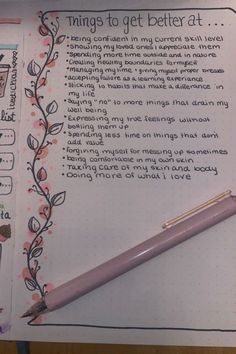 Things to get better at...
• being confident in my current skill level
• showing my loved ones I appreciate them
• spending more time outside and in nature
• Creating healthy boundaries for myself
• managing my time + giving myself proper breaks
• accepting failure as a learning experience
• Sticking to habits that make a difference in
my life
• Saying "no" to more things that drain my
well being
• Expressing my true feelings without
bottling them up
• Spending less time on things that don't
add value
• Forgiving myself for messing up sometimes
• being comfortable in my own skin
• Taking care of my skin and body
• Doing more of what i love